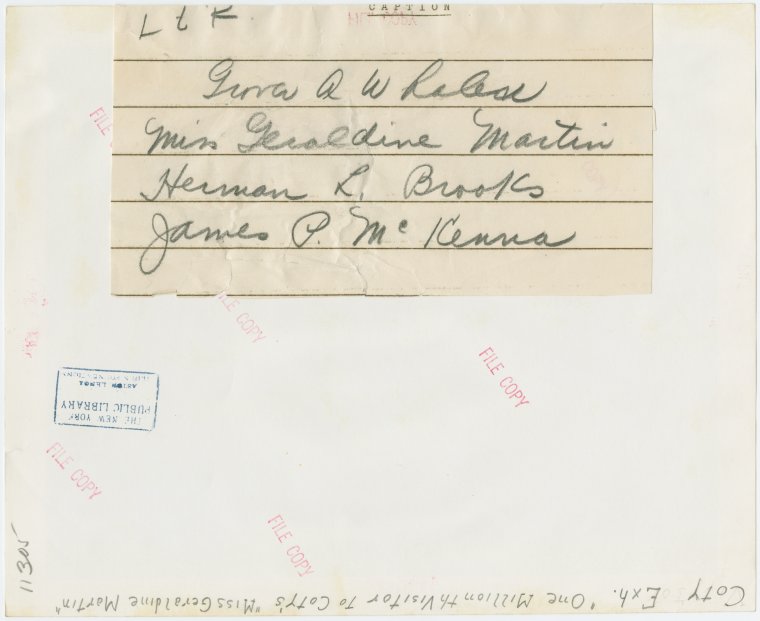 CAPTION
FILE COPY
L t R
Grover A Whalen
FILE
Miss Geraldine Martin
Herman L. Brooks
James P. McKenna
FILE COPY
FILE COPY
THE NEW YORK
PUBLIC LIBRARY
ASTOR LENOX
TILDEN FOUNDATIONS
FILE COPY
FILE COPY
11305
Coty Exh. "One Millionth Visitor To Coty's "Miss Geraldine Martin"